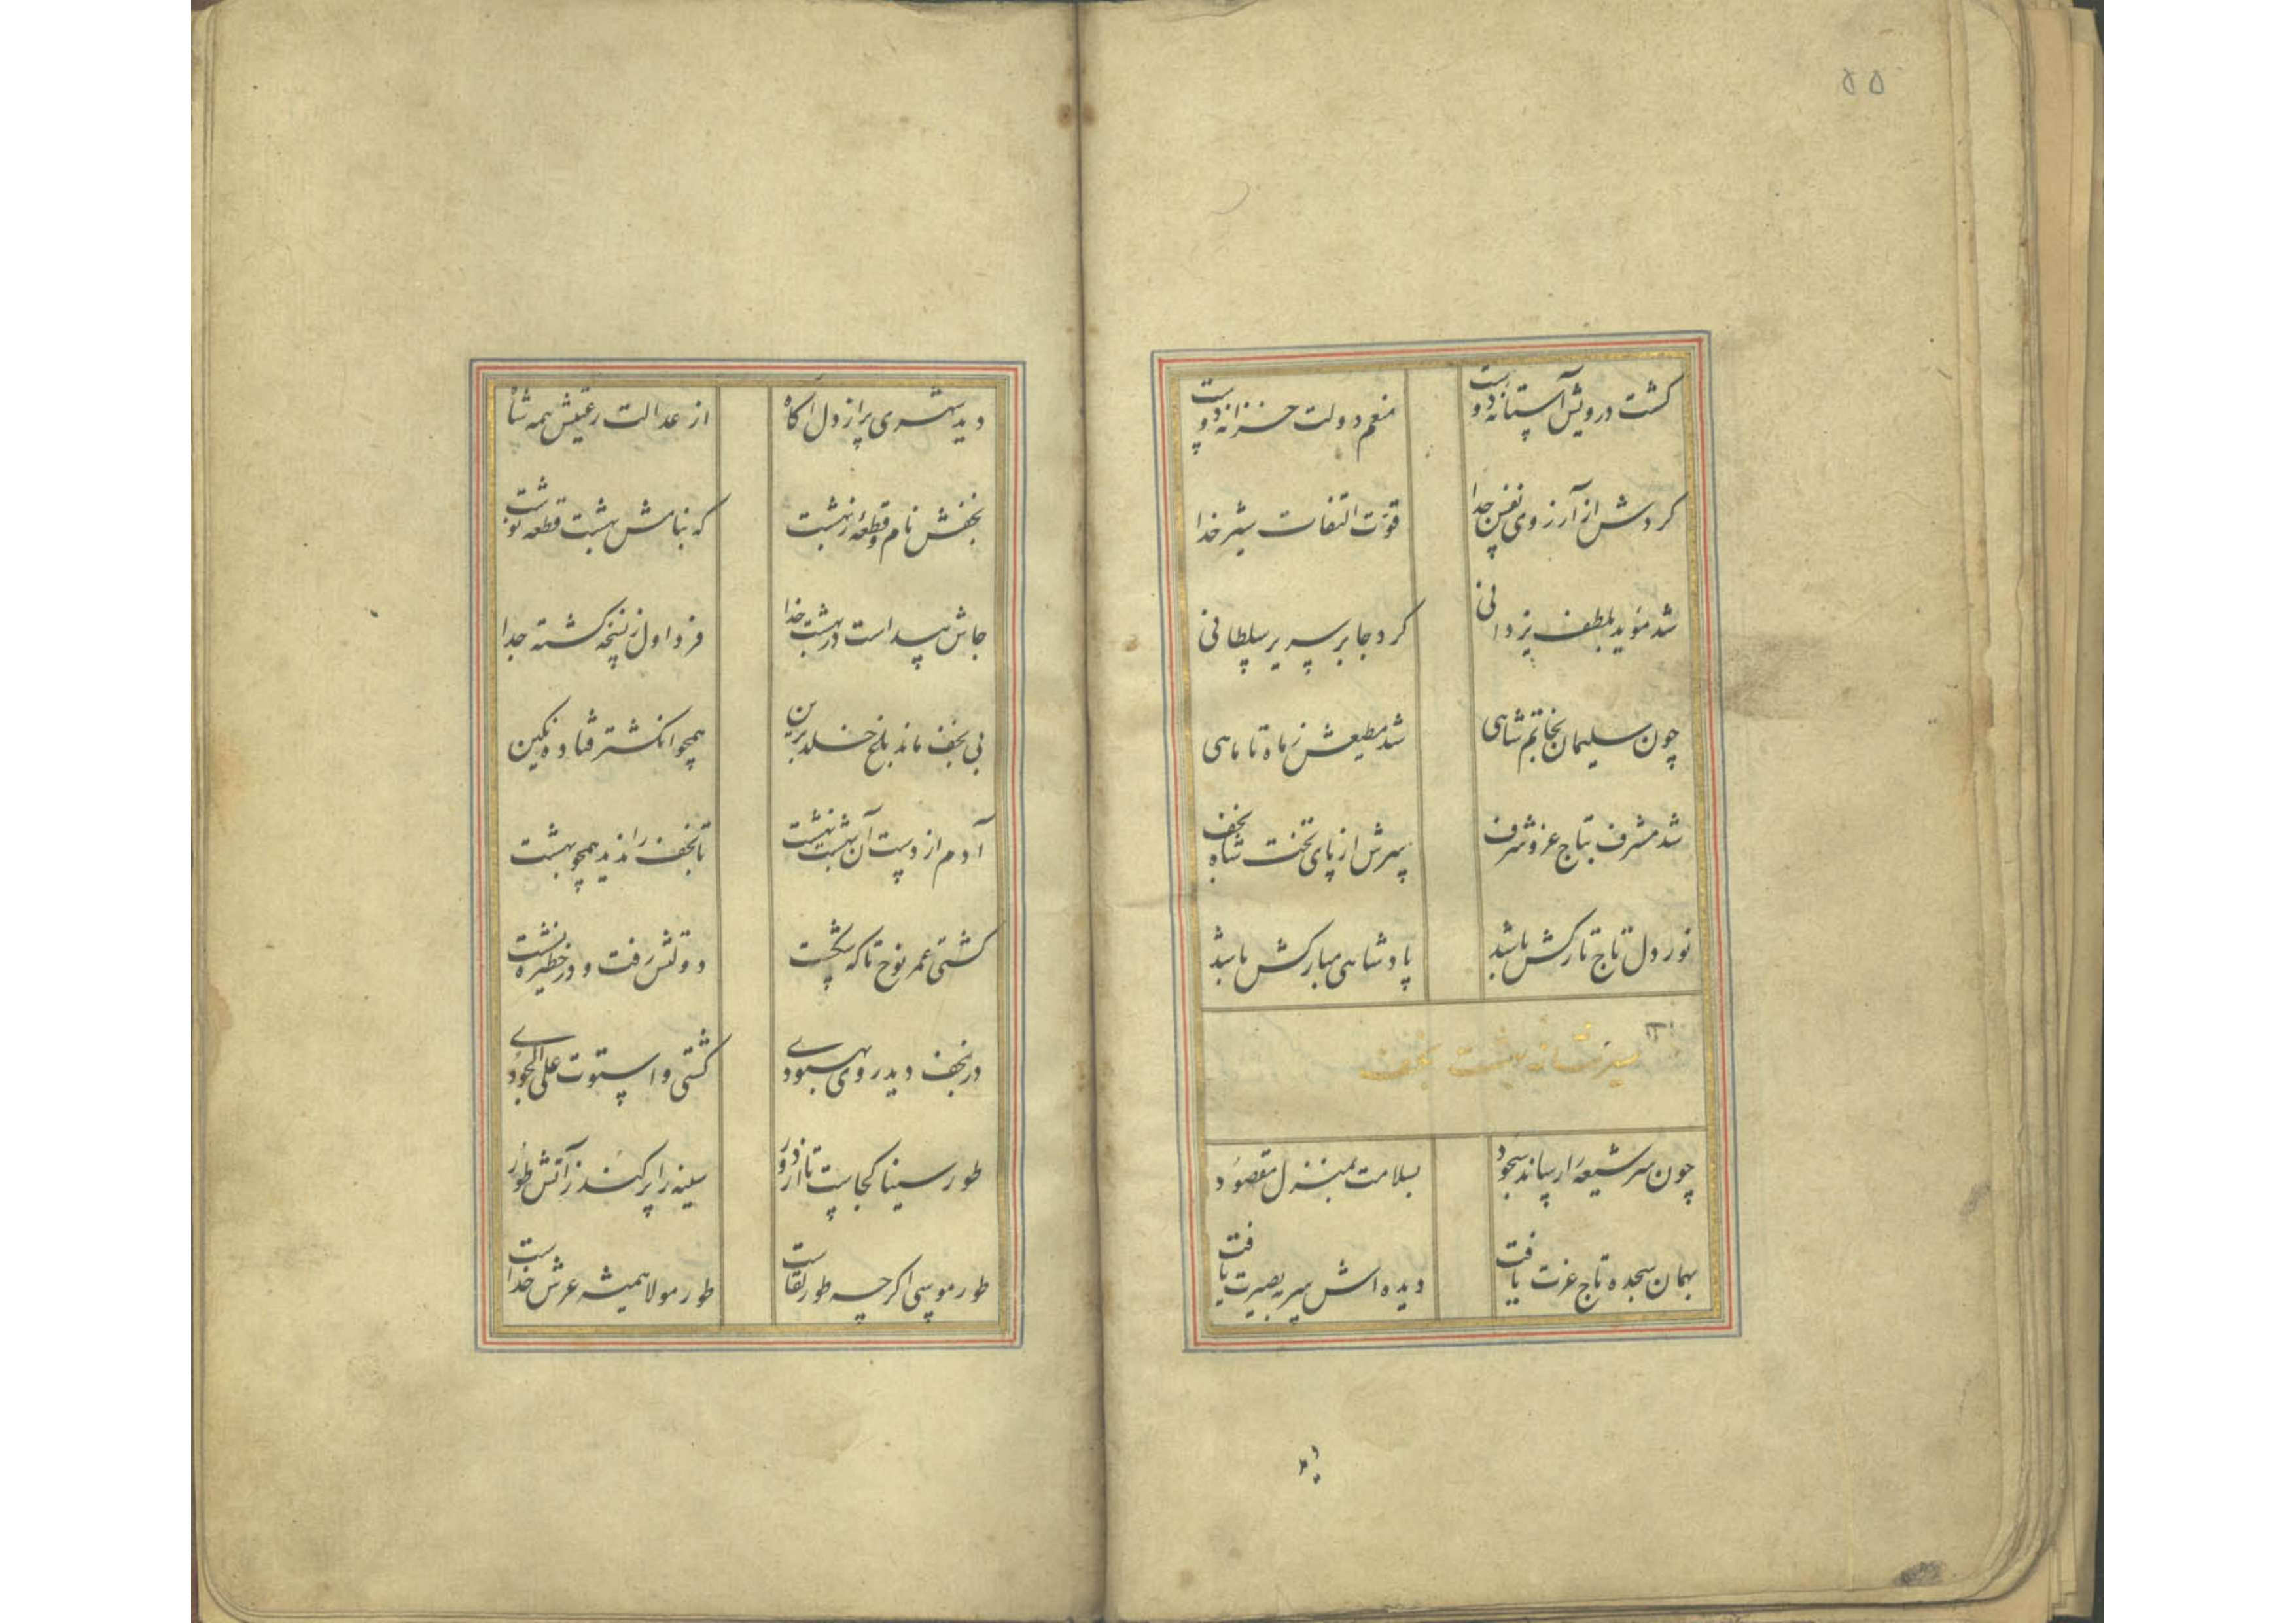 ۵۵
گشت درویش آستانه دوست منعم دولت خزانه دوست
کردش از آرزوی نفس جدا قوّت التفات شیر خدا
شد مؤید بلطف یزدانی کرد جا بر سریر سلطانی
چون سلیمان بخاتم شاهی شد مطیعش ز ماه تا ماهی
شد مشرف بتاج عز و شرف سرش از پای تخت شاه نجف
نور دل تاج تارکش باشد پادشاهی مبارکش باشد
بهشت نجف
چون سر شیعه را رساند سجود بسلامت بمنزل مقصود
بهمان سجده تاج عزت یافت دیده اش سیر بصیرت یافت
دید
دید شهری پر از دل آکاه از عدالت رعیتش همه شاه
نجفش نام و قطعهٔ ز بهشت که بنامش بهشت قطعه نوشت
جاش پیداست در بهشت خدا فرد اول ز نسخه گشته جدا
بی نجف ماند باغ خلد برین همچو انگشتر فتاده نگین
آدم از دست آن بهشت نهشت تا نجف را ندید همچو بهشت
کشتی عمر نوح تا که شکست دولتش رفت و در حظیره نشست
در نجف دید روی بهبودی کشتی و استوت علی الجودی
طور سینا کجاست تا از دور سینه را پر کند ز آتش طور
طور موسی اگرچه طور لقاست طور مولا همیشه عرش خداست